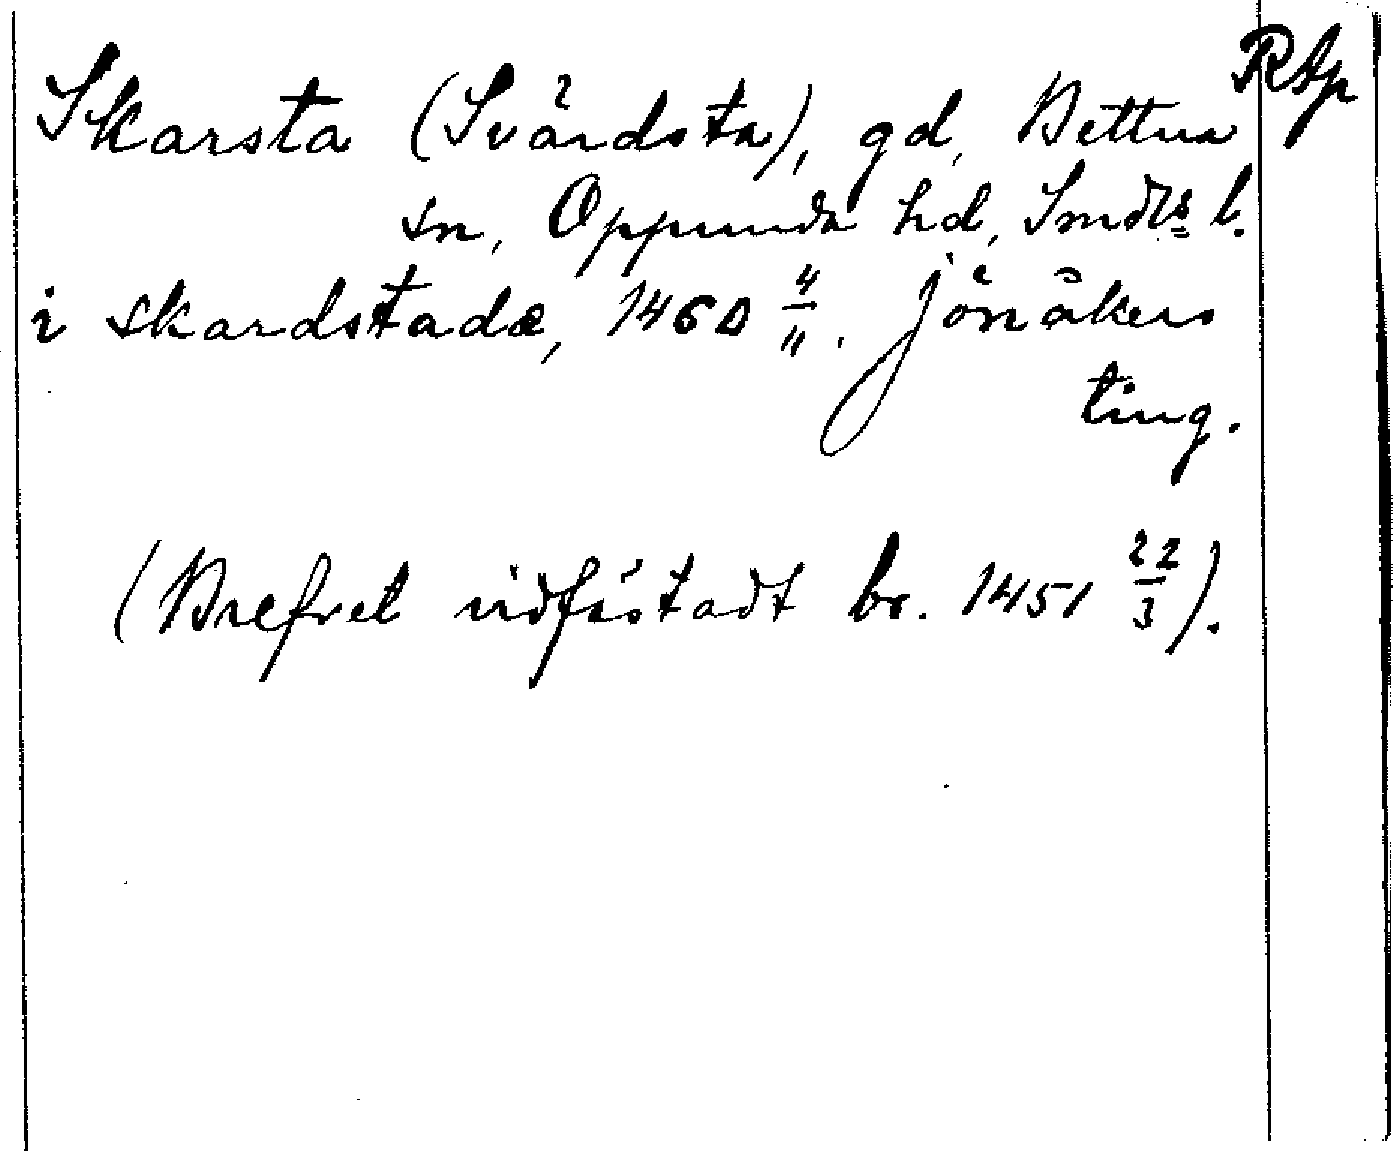 RAp
Skarsta (Svärdsta), gd, Bettna
sn, Oppunda hd, Smdls l.
i skardstadæ, 1460 4/11. Jönåkers
ting.
(Brefvet vidfästadt br. 1451 22/3).